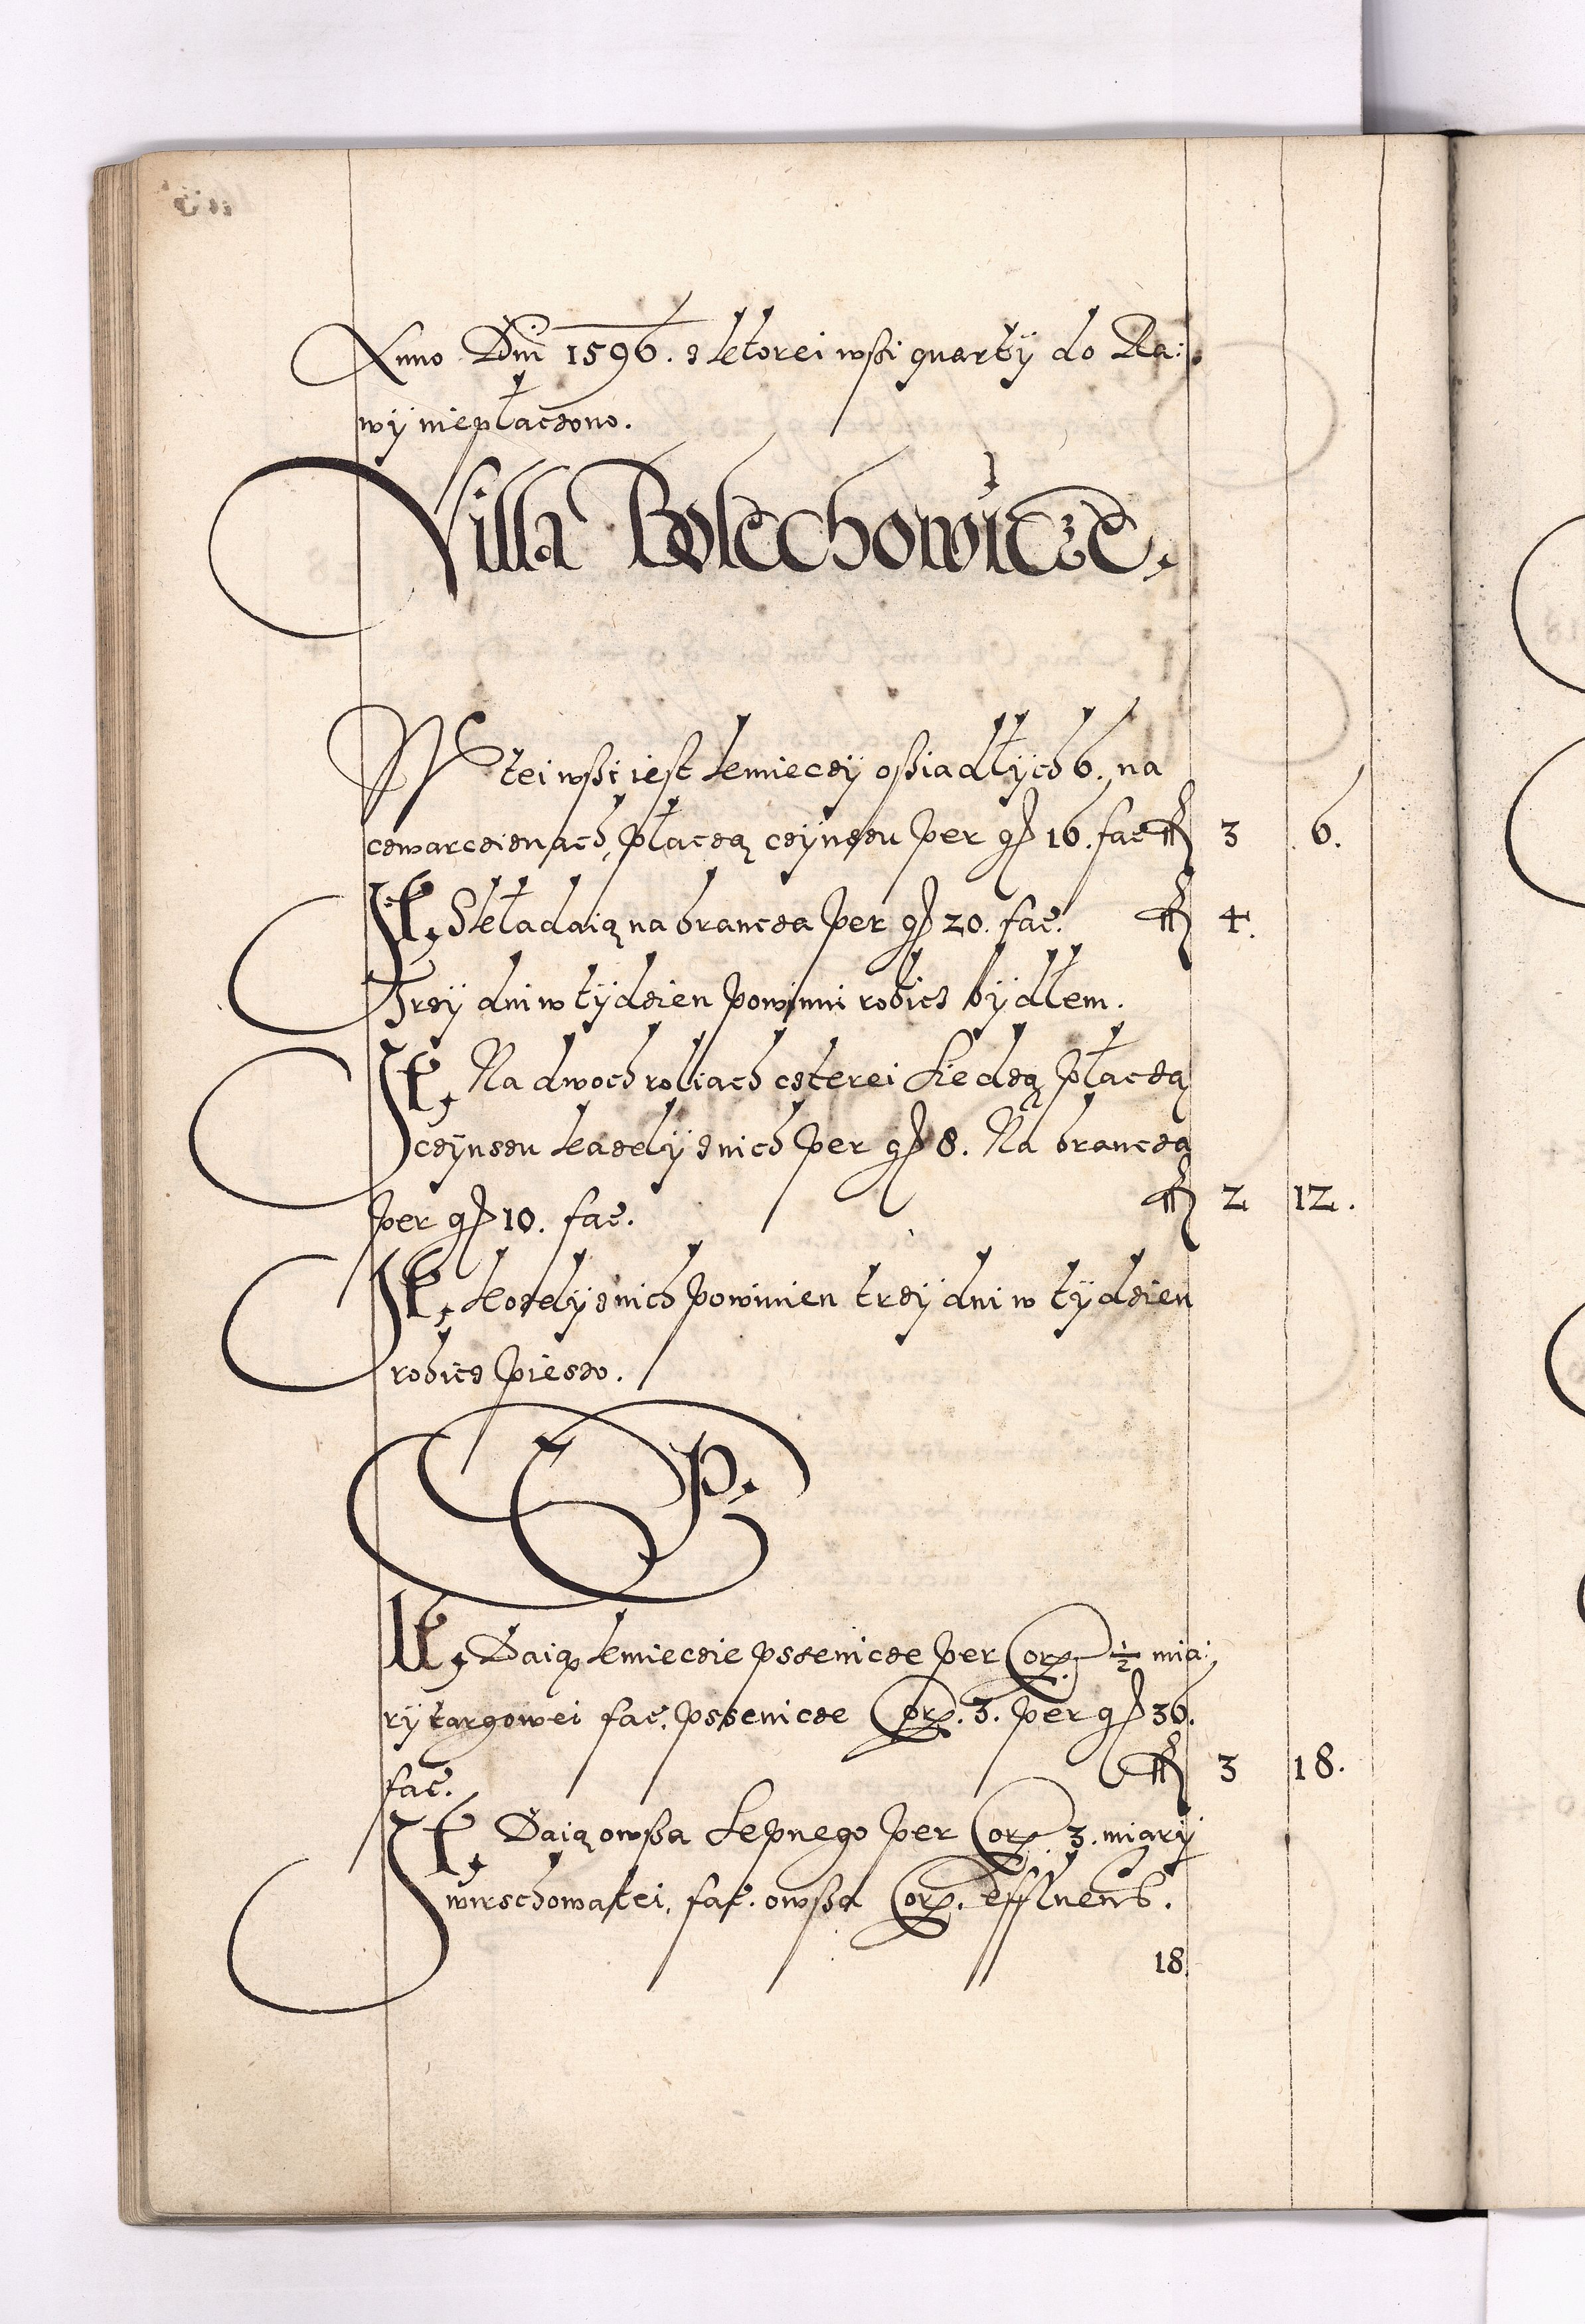 Anno Dni 1596. z ktorei wßi quarty do Ra:
wy nieplaczono.
Villa Bolechowicze.
W tei wßi iest kmieczy oßiadłych 6. na
czwarcziznach, płaczą czynszu per gr 16. fac fl 3 6.
It. Składaią na brancza per gr 20. fac. fl 4.
Trzy dni w tydzien powinni robicz bydłem.
It. Na dwoch roliach czterei siedzą płaczą
czynszu kazdy z nich per gr 8. Na brancza
per gr 10. fac. fl 2 12.
It. kozdy z nich powinien trzy dni w tydzien
robicz pieszo.
P.
It. Daią kmiecie pszenicze per Corz. ½ mia:
ry targowei fac. pszenicze Corz. 3. per gr 36.
fac. fl 3 18.
It. Daią owßa sepnego per Corz. 3. miary
wirzchowatei, fac. owßa Corz. effluent.
18